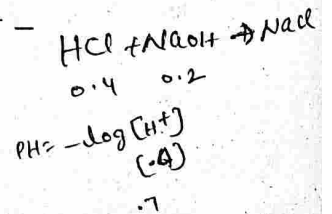 HCl + NaOH → NaCl
0.4 0.2
PH = -log [H+]
(.4)
.7